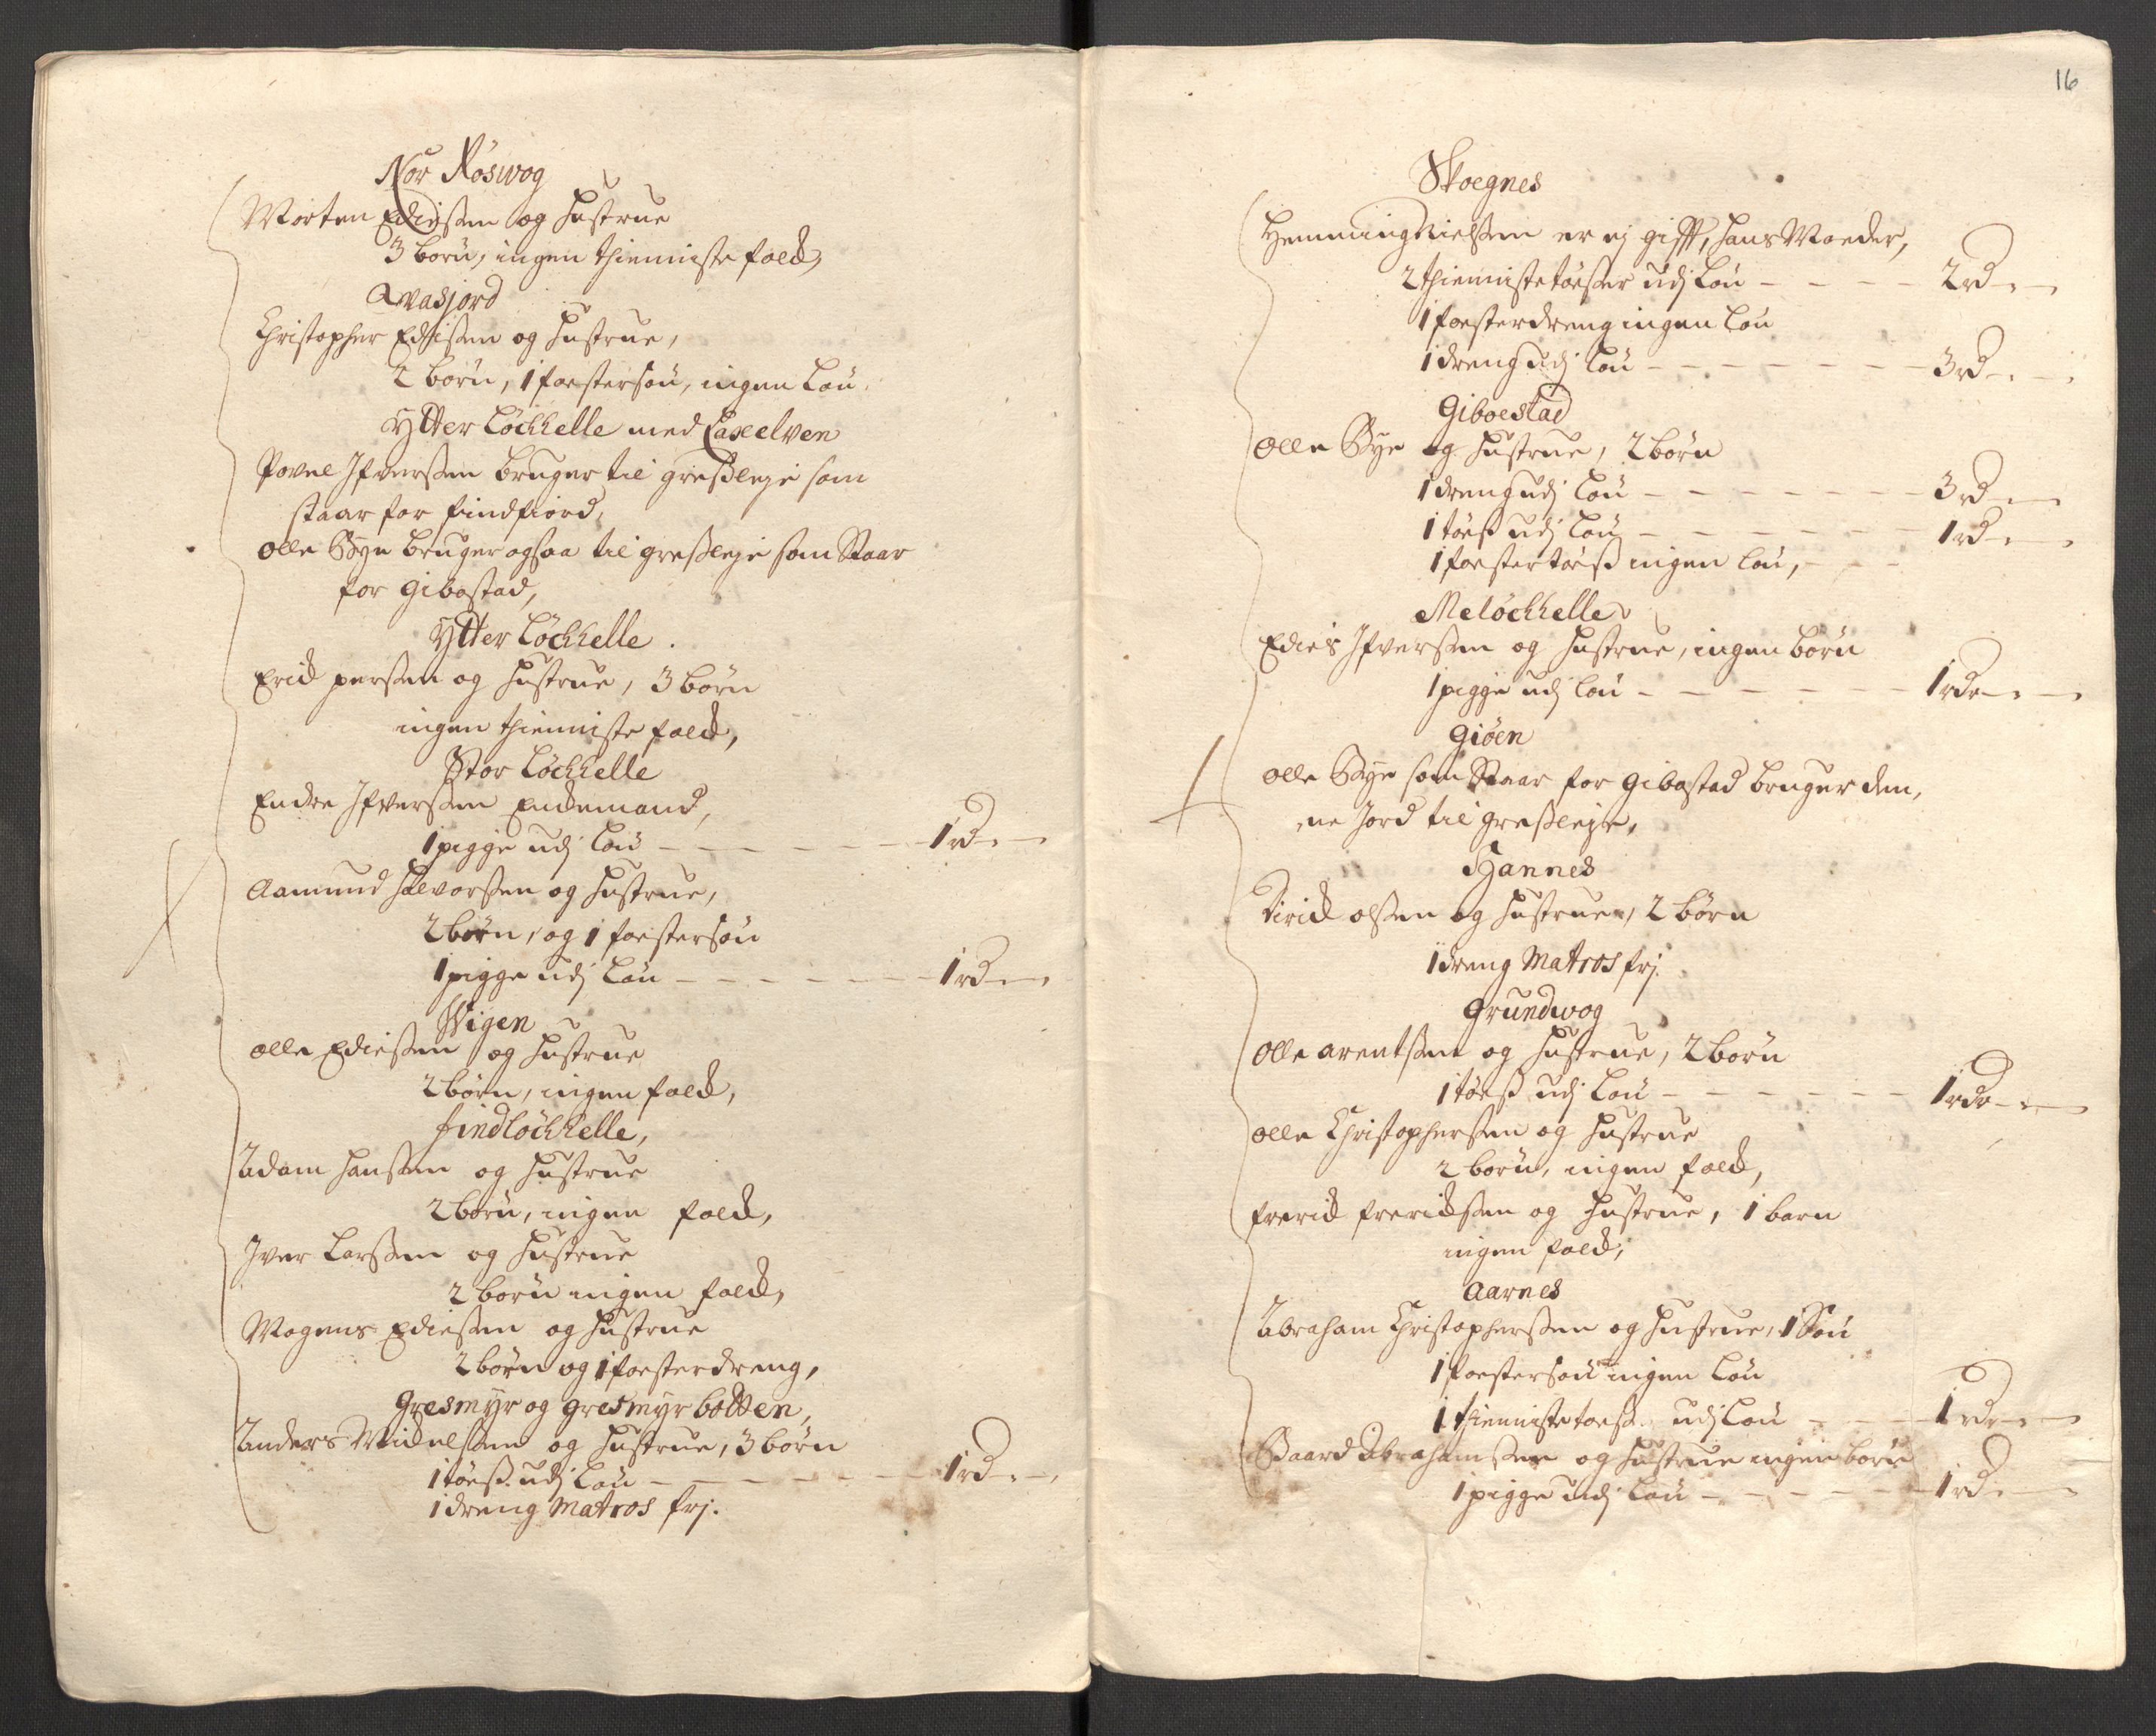 Nor Røswog
Morten Ediessen og Hustrue
3 børn, ingen thienniste folck,
Qvasjord
Christopher Edissen og Hustrue,
2 børn, 1 fostersøn, ingen løn.
Ytter Løckhelle med Laxelven
Povel Ifversen bruger til græsleje som
staar for findfiord,
Olle Bye bruger ogsaa til græsleje som staar
for gibostad,
Ytter Løckhelle.
Erick persen og Hustrue, 3 børn
ingen thienniste folck,
Stor Løckhelle
Endre Ifversen Enckemand,
1 pigge udj løn - - - - - - 1 rd - -
Aamund Halvorsen og Hustrue,
2 børn, og 1 fostersøn
1 pigge udj løn - - - - - - 1 rd - -
Wigen
Olle Ediessen og Hustrue
2 børn, ingen folck,
findløckhelle,
Adam Hansen og Hustrue
2 børn, ingen folck,
Iver Larsen og Hustrue
2 børn ingen folck,
Mogens Ediessen og Hustrue
2 børn og 1 fosterdreng,
Gresmyr og gresmyrbotten,
Anders Mickelsen og Hustrue, 3 børn
1 tøess udj løn - - - - - - 1 rd - -
1 dreng Matros frj.
16
Skoegnes
Hemming Nielsen er ej gifft, hans Moeder,
2 thienniste tøesser udj løn - - - - 2 rd - -
1 foesterdreng ingen løn
1 dreng udj løn - - - - - - 3 rd - -
Giboestad
Olle Bye og Hustrue, 2 børn
1 dreng udj løn - - - - - - 3 rd - -
1 tøess udj løn - - - - - - 1 rd - -
1 foestertøess ingen løn, - - -
Meløckhelle
Edies Ifversen og Hustrue, ingen børn
1 pigge udj løn - - - - - - 1 rdr - -
Giøen
Olle Bye som staar for gibostad bruger den,
ne Jord til græsleje,
Hannes
Dirick olsen og Hustrue, 2 børn
1 dreng Matros frj.
Grundwog
Olle arentsen og Hustrue, 2 børn
1 tøess udj løn - - - - - - 1 rdr - -
Olle Christophersen og Hustrue
2 børn, ingen folck,
frerick frericksen og Hustrue, 1 barn
ingen folck,
Aarnes
Abraham Christophersen og Hustrue, 1 Søn
1 foestersøn ingen løn
1 thienniste toess udj løn - - - 1 rdr - -
Baard Abrahamsen og Hustrue ingen børn
1 pigge udj løn - - - - - - 1 rd - -